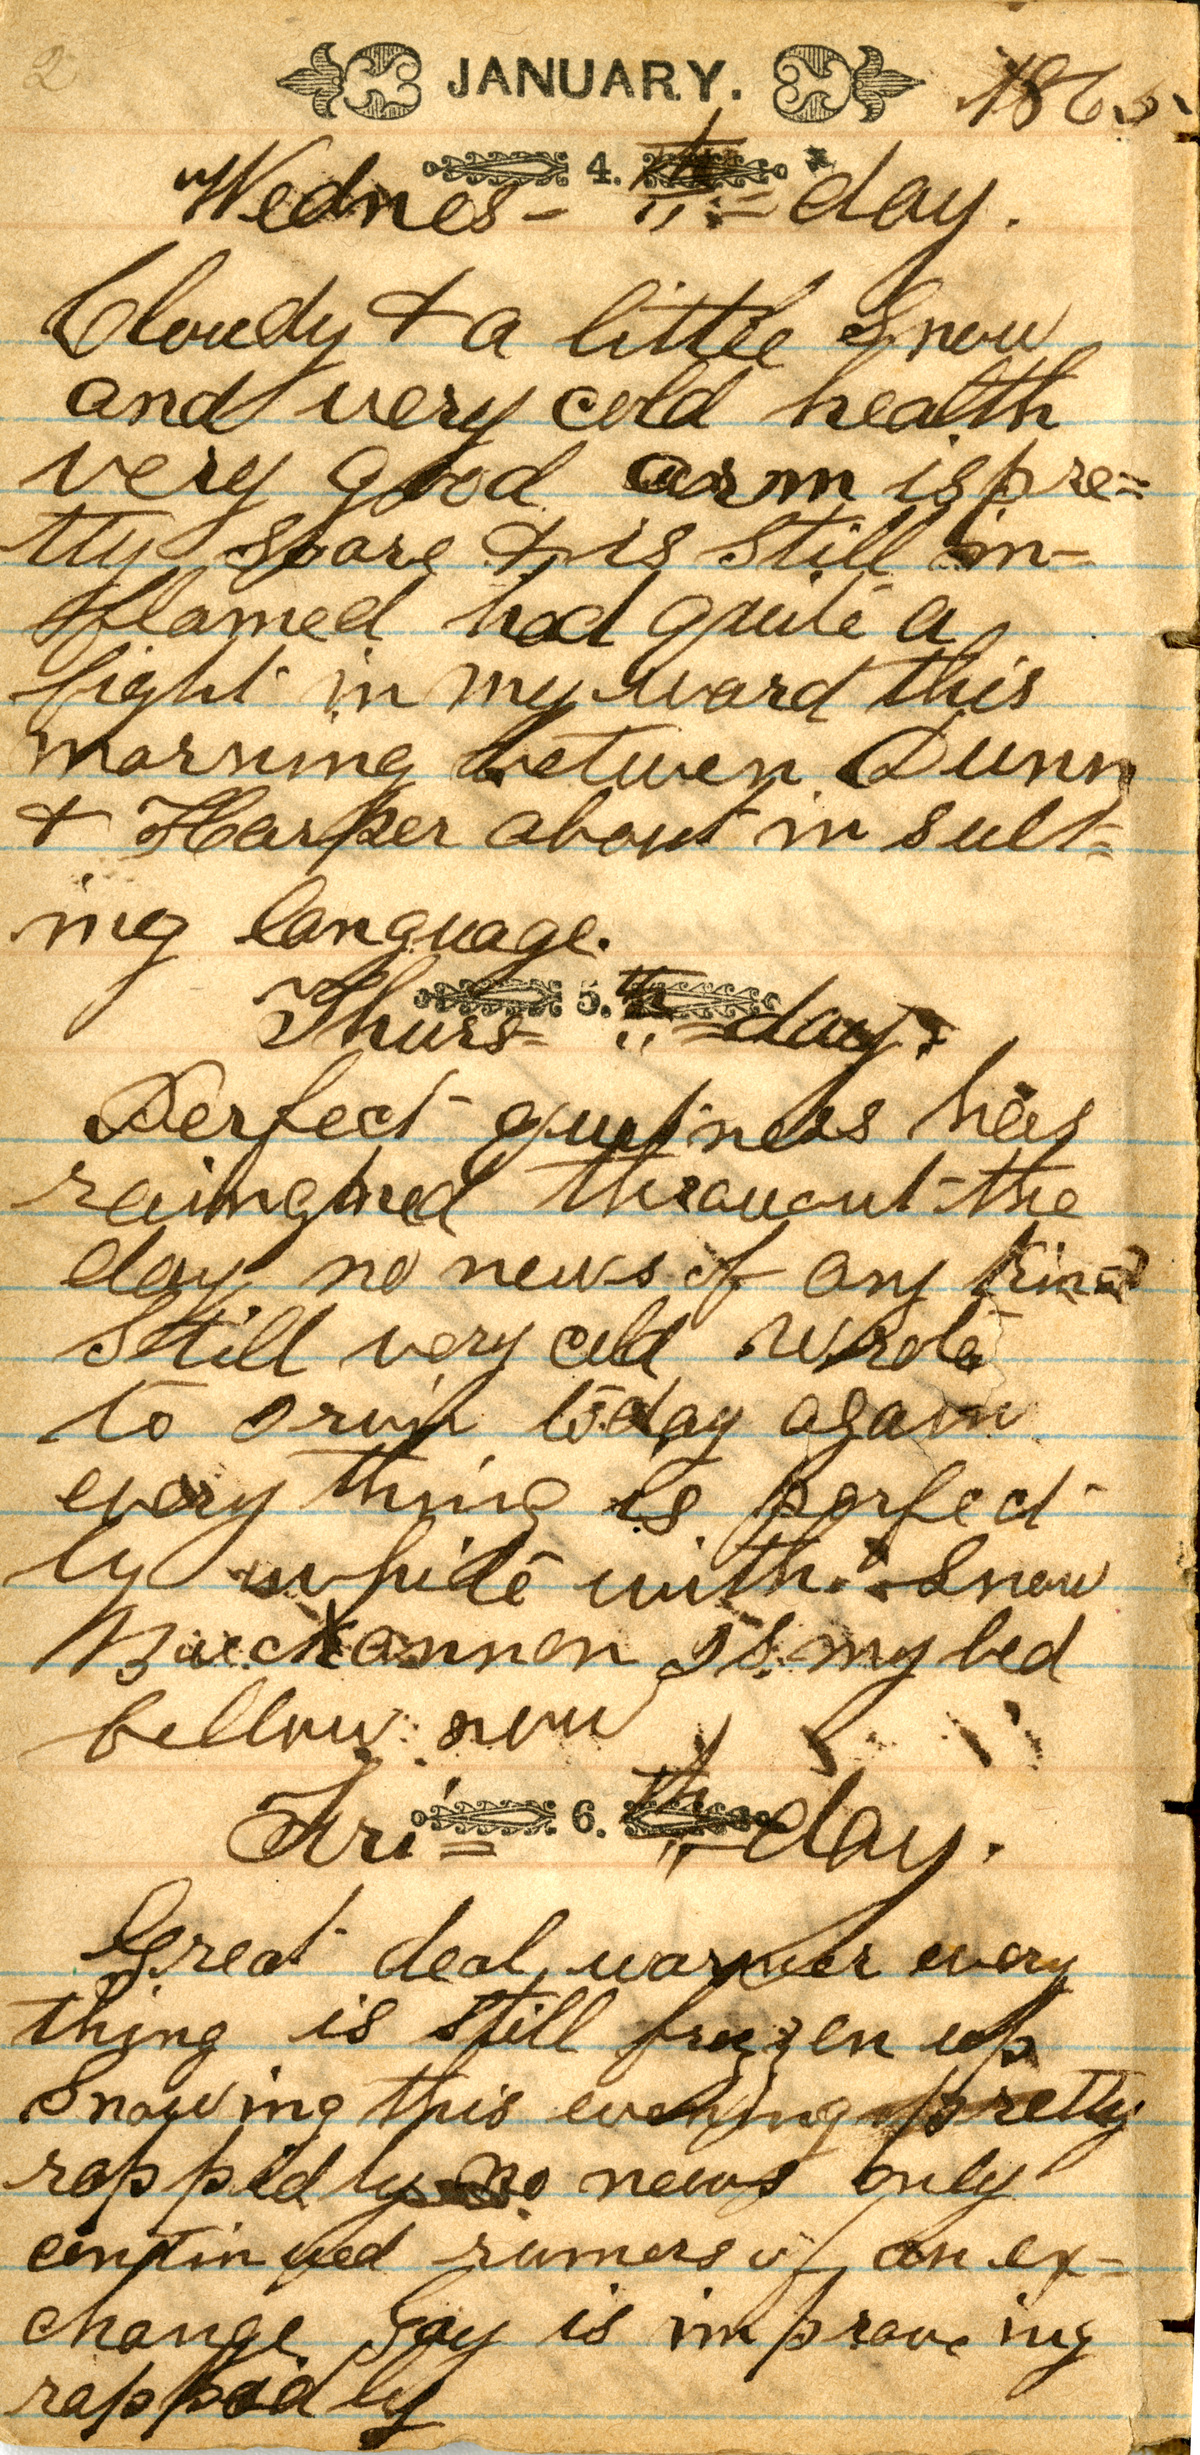 2
JANUARY. 1865.
4.
Wednes- th = day.
Cloudy & a little Snow
and very cold health
very good arm is pre=
tty soare & is still in-
flamed had quite a
fight in my ward this
morning betwen Dunn
& Harper about in sult=
ing language.
5.
Thurs= th = day.
Perfect quietness has
raingned throuout the
day no news of any kind
Still very cold Wrote
to orvil today again
every thing is perfect
ly white with Snow
Buckannon is my bed
fellow now
6.
Fri= th = day.
Great deal warmer every
thing is still frozen up
Snowing this evening pretty
rappidly no news only
continued rumers of an ex-
change Gay is improveing
rappidly